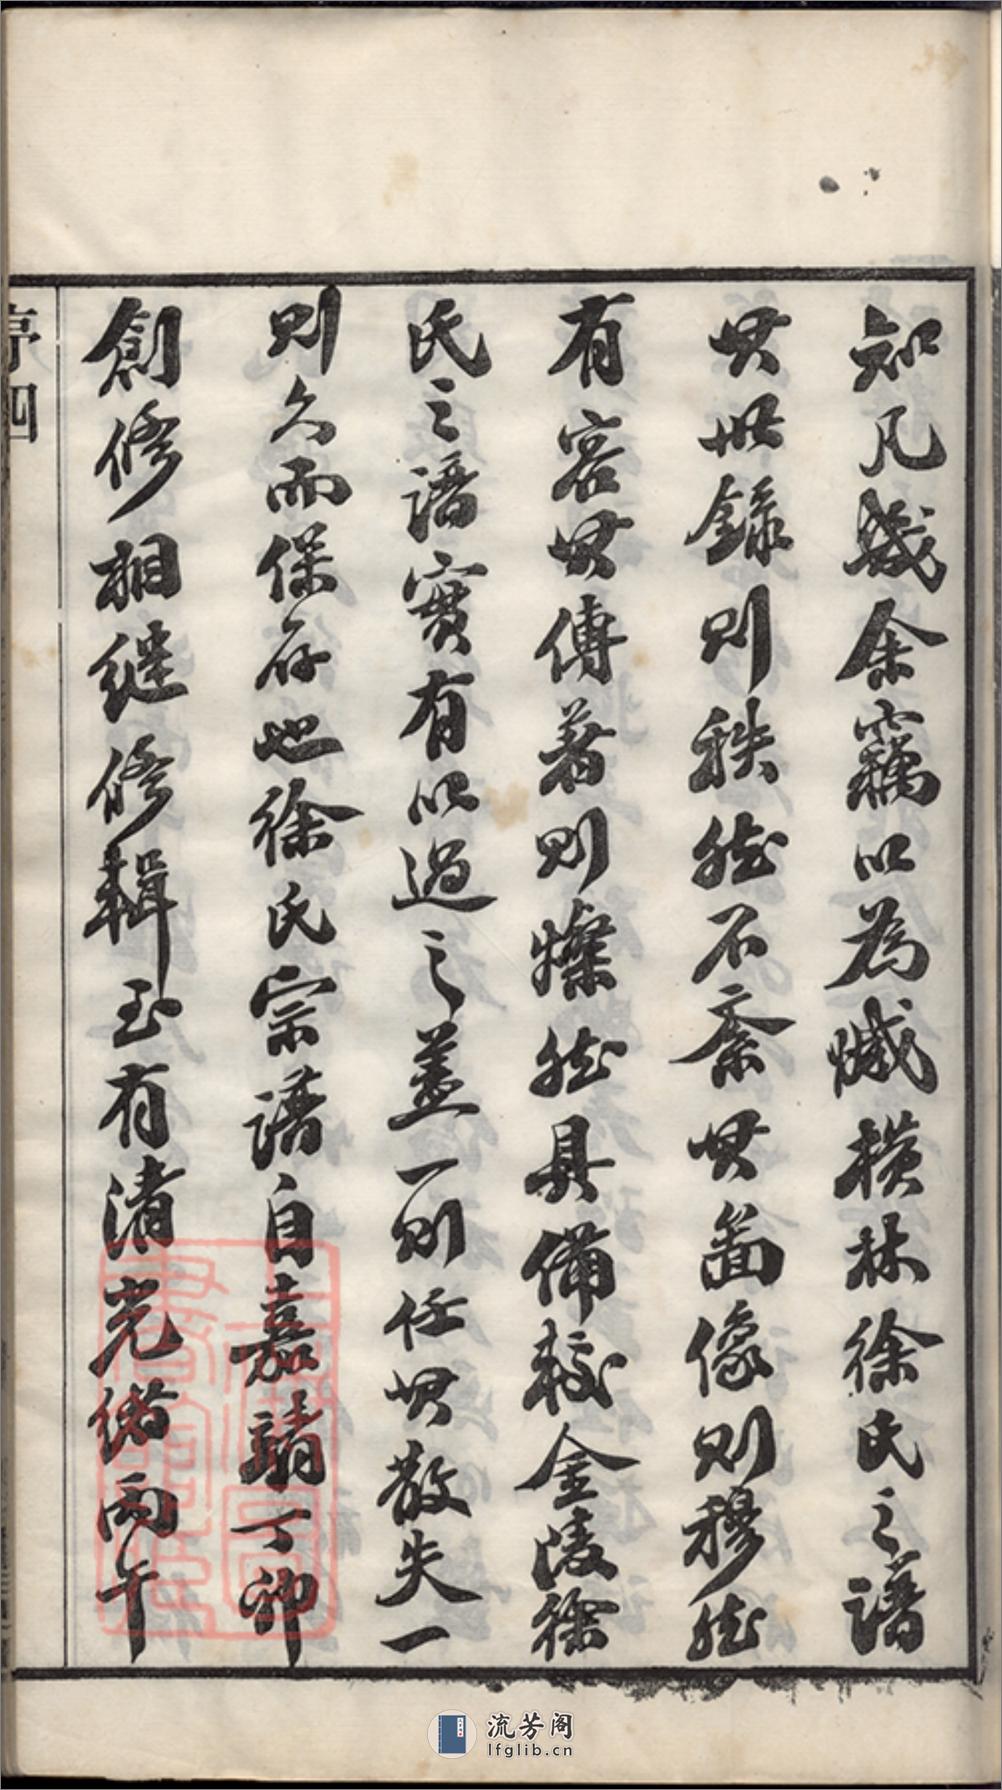 知凡幾余竊以為憾橫林徐氏之譜
其世錄則秩然不紊其圖像則穆然
有容其傳著則燦然具備較金陵徐
氏之譜實有以過之蓋一則任其散失一
則久而保存也徐氏宗譜自嘉靖丁卯
創修相繼修輯至有清光緒丙午
序四
流芳阁
lfglib.cn